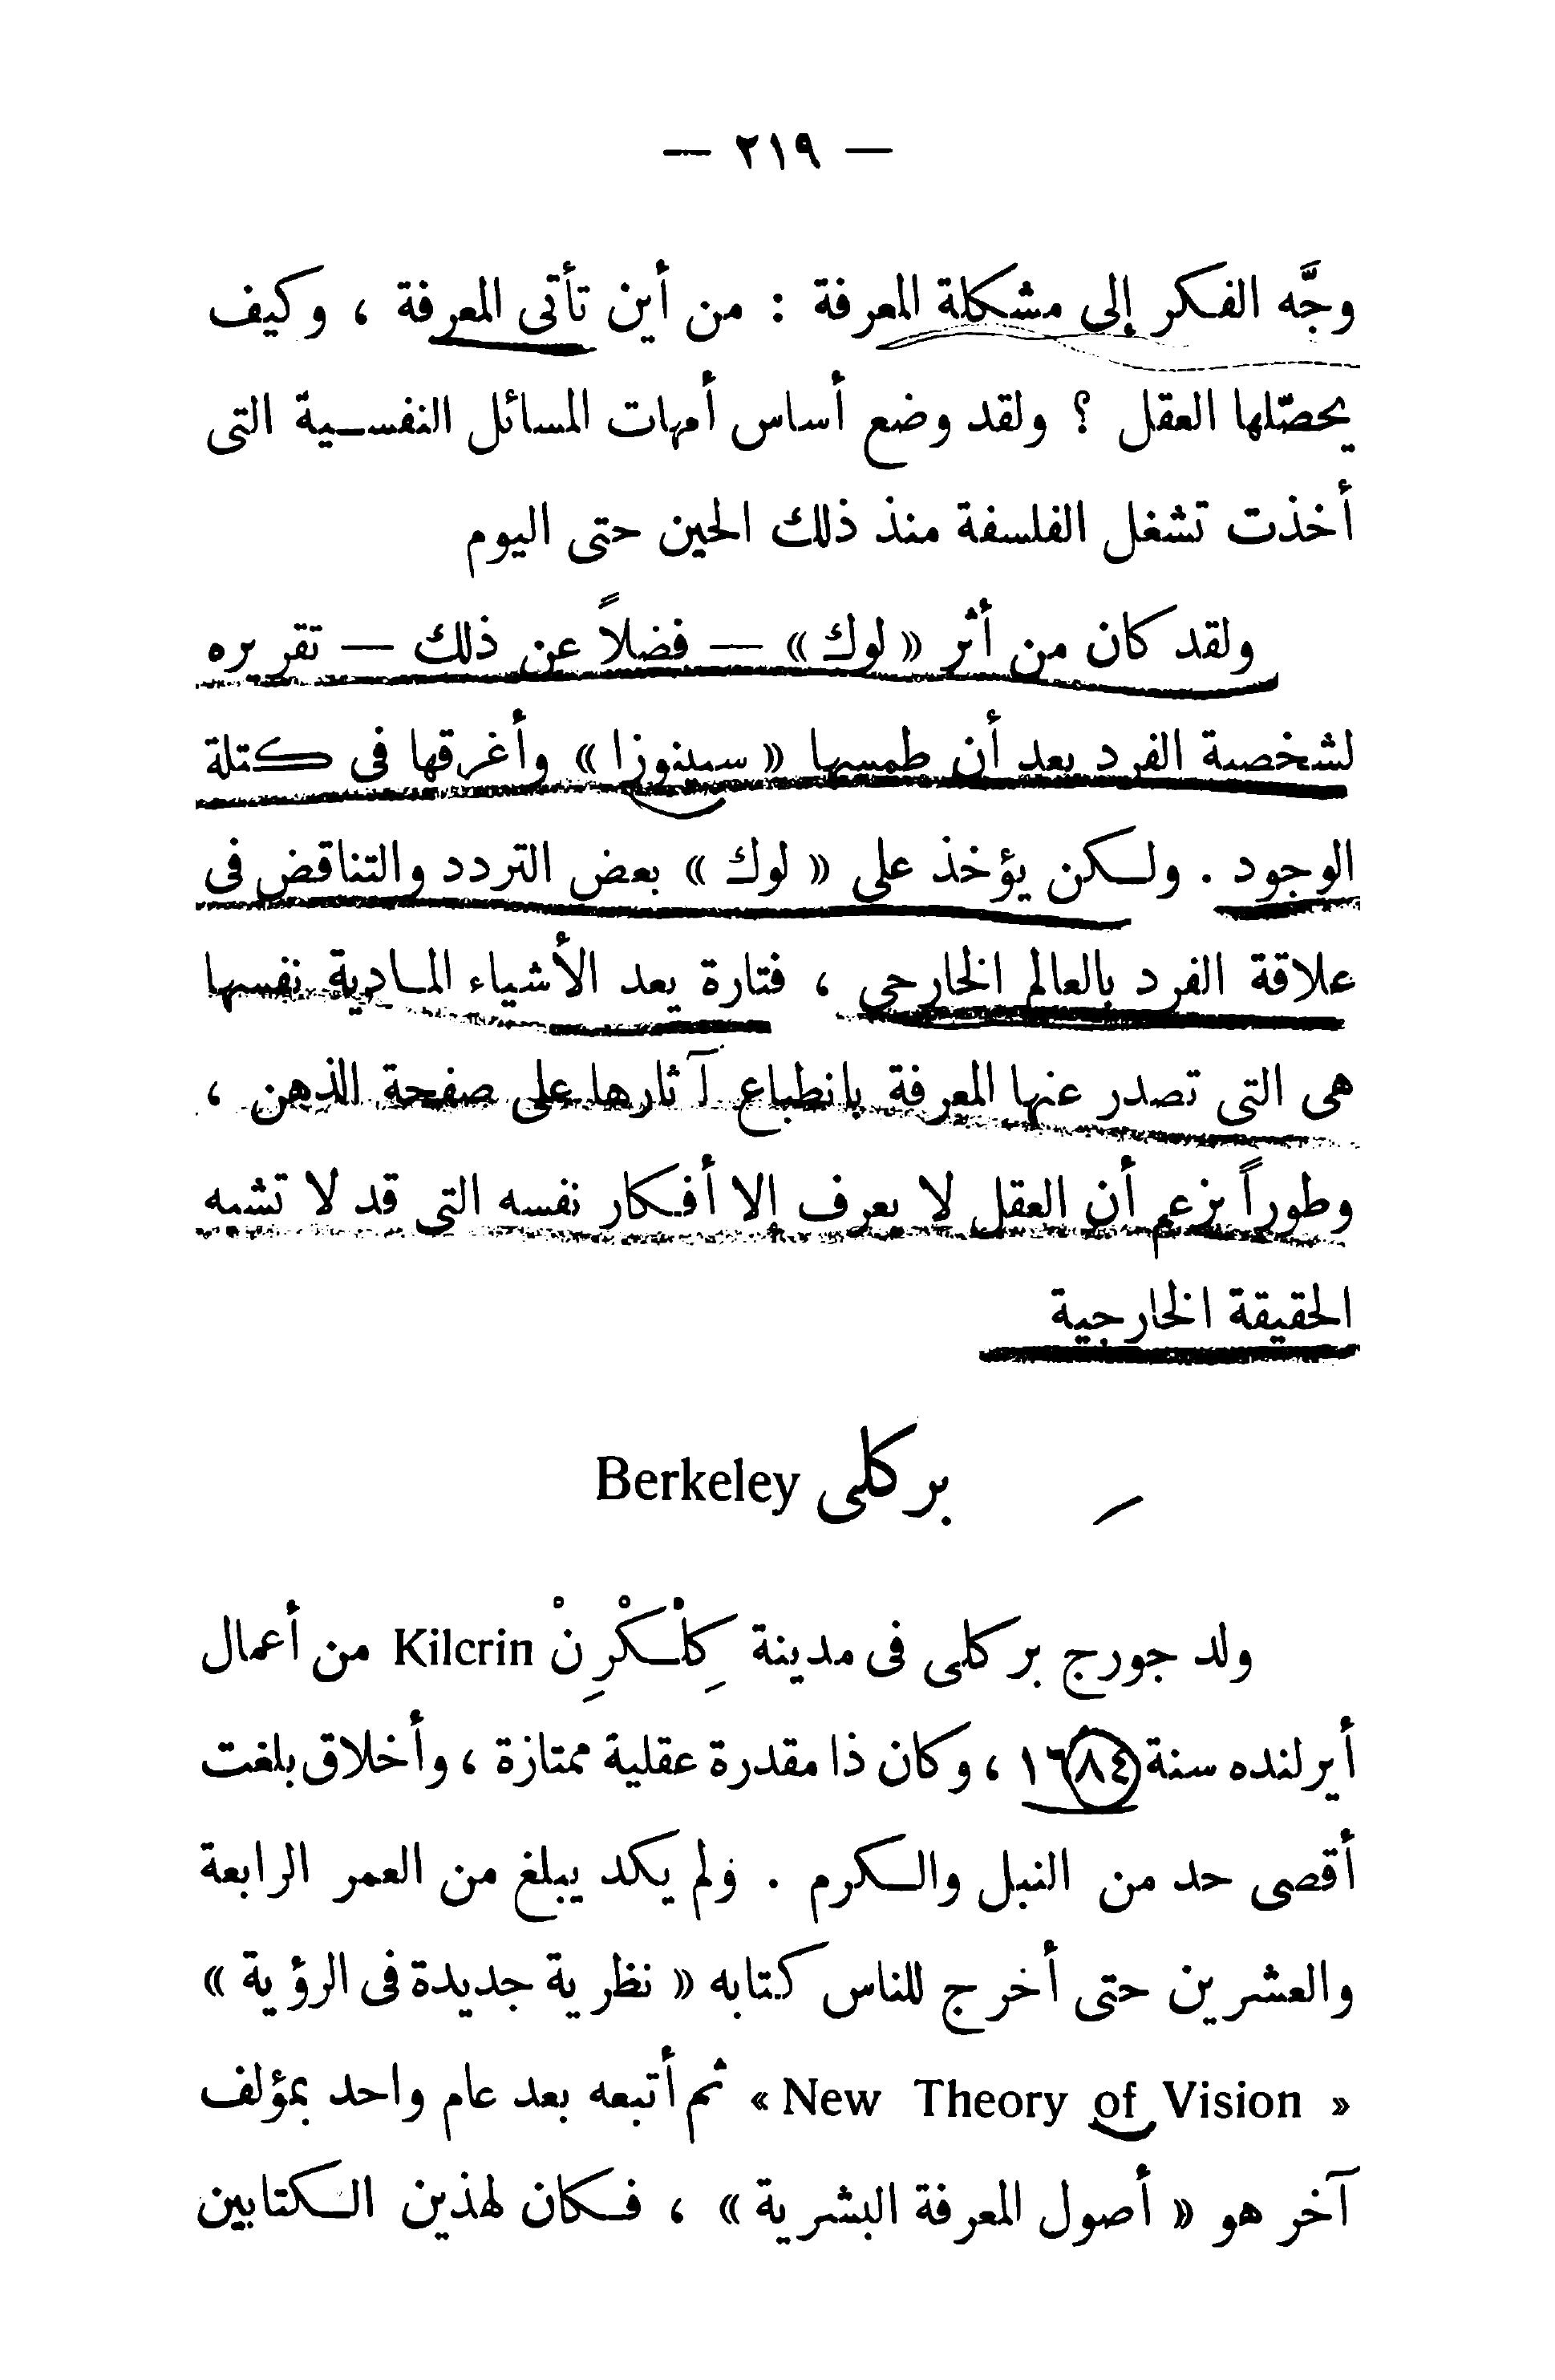 — ٢١٩ —
وجَّه الفكر إلى مشكلة المعرفة : من أين تأتى المعرفة ، وكيف
يحصّلها العقل ؟ ولقد وضع أساس أمهات المسائل النفسية التى
أخذت تشغل الفلسفة منذ ذلك الحين حتى اليوم
ولقد كان من أثر « لوك » — فضلاً عن ذلك — تقريره
لشخصية الفرد بعد أن طمسها « سبنوزا » وأغرقها فى كتلة
الوجود . ولكن يؤخذ على « لوك » بعض التردد والتناقض فى
علاقة الفرد بالعالم الخارجى ، فتارة يعد الأشياء المادية نفسها
هى التى تصدر عنها المعرفة بانطباع آثارها على صفحة الذهن ،
وطوراً يزعم أن العقل لا يعرف إلا أفكار نفسه التى قد لا تشبه
الحقيقة الخارجية
بركلى Berkeley
ولد جورج بركلى فى مدينة كِلْكْرِنْ Kilcrin من أعمال
أيرلنده سنة ١٦٨٤ ، وكان ذا مقدرة عقلية ممتازة ، وأخلاق بلغت
أقصى حد من النبل والكرم . ولم يكد يبلغ من العمر الرابعة
والعشرين حتى أخرج للناس كتابه « نظرية جديدة فى الرؤية »
« New Theory of Vision » ثم أتبعه بعد عام واحد بمؤلف
آخر هو « أصول المعرفة البشرية » ، فكان لهذين الكتابين